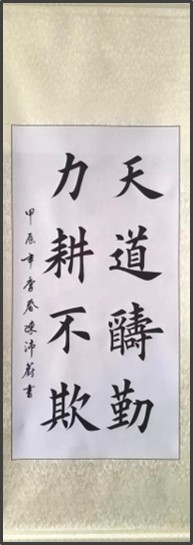 天道酬勤
力耕不欺
甲辰年季春陈沛蔚书